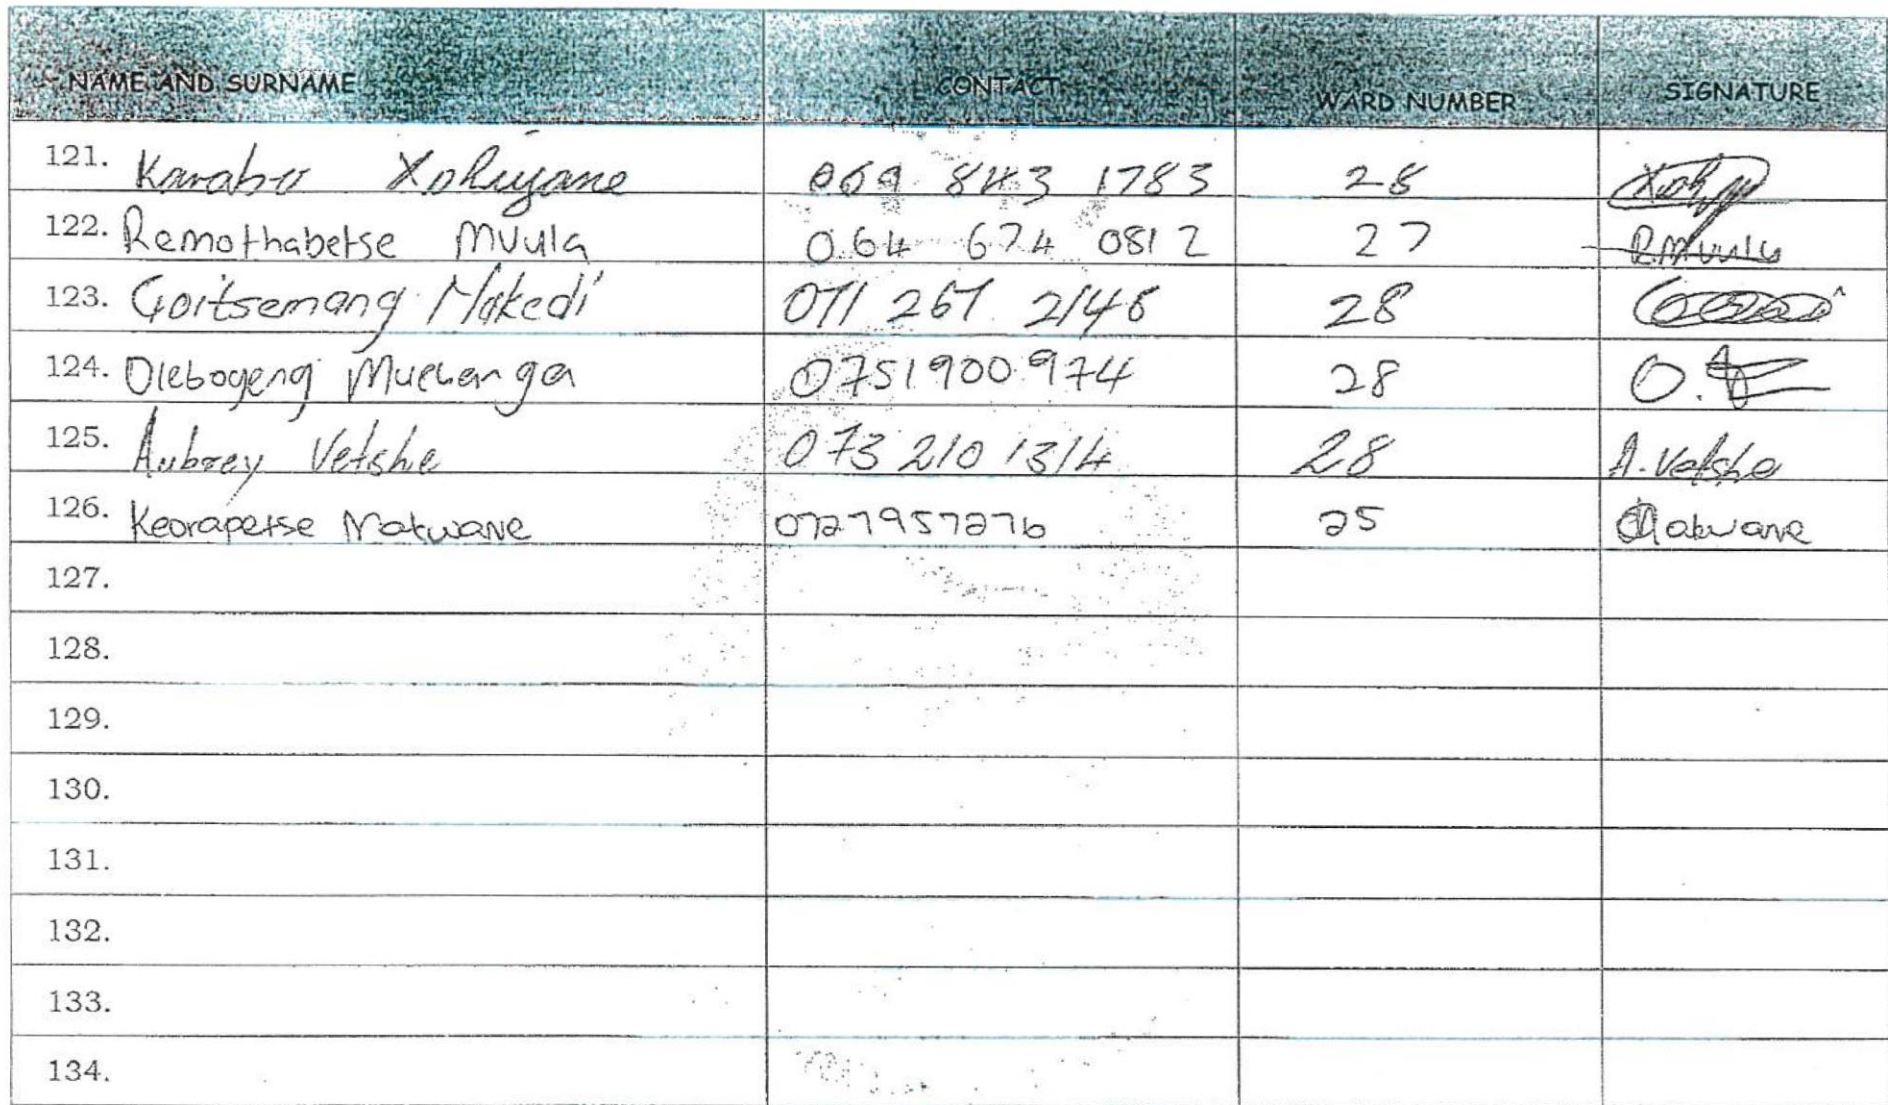 NAME AND SURNAME CONTACT WARD NUMBER SIGNATURE
121. Karabo Xohiyane 069 843 1783 28
122. Remothabetse Mvula 064 674 0812 27 R.Mvula
123. Goitsemang Makedi 071 267 2146 28
124. Olebogeng 0751900974 28
125. Aubrey Vetshe 073 210 1314 28 A.Vetshe
126. Keorapetse Matwane 0727957276 25 Matwane
127.
128.
129.
130.
131.
132.
133.
134.